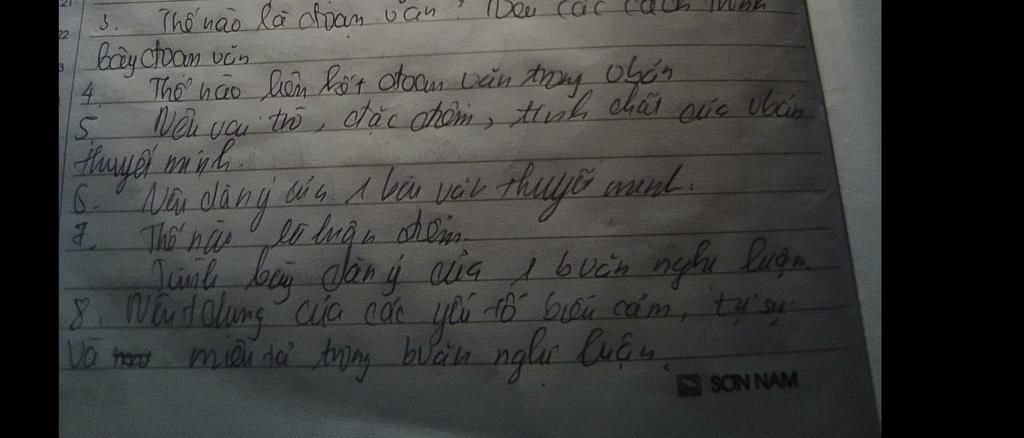 3. Thế nào là đoạn văn? Nêu các cách trình
bày đoạn văn
4. Thế nào liên kết đoạn văn trong vbản
5. Nêu vai trò, đặc điểm, tính chất của vbản
thuyết minh.
6. Nêu dàn ý của 1 bài văn thuyết minh.
7. Thế nào là luận điểm.
Trình bày dàn ý của 1 bvăn nghị luận
8. Nêu tdụng của các yếu tố biểu cảm, tự sự
và miêu tả trong bvăn nghị luận.
SƠN NAM
22